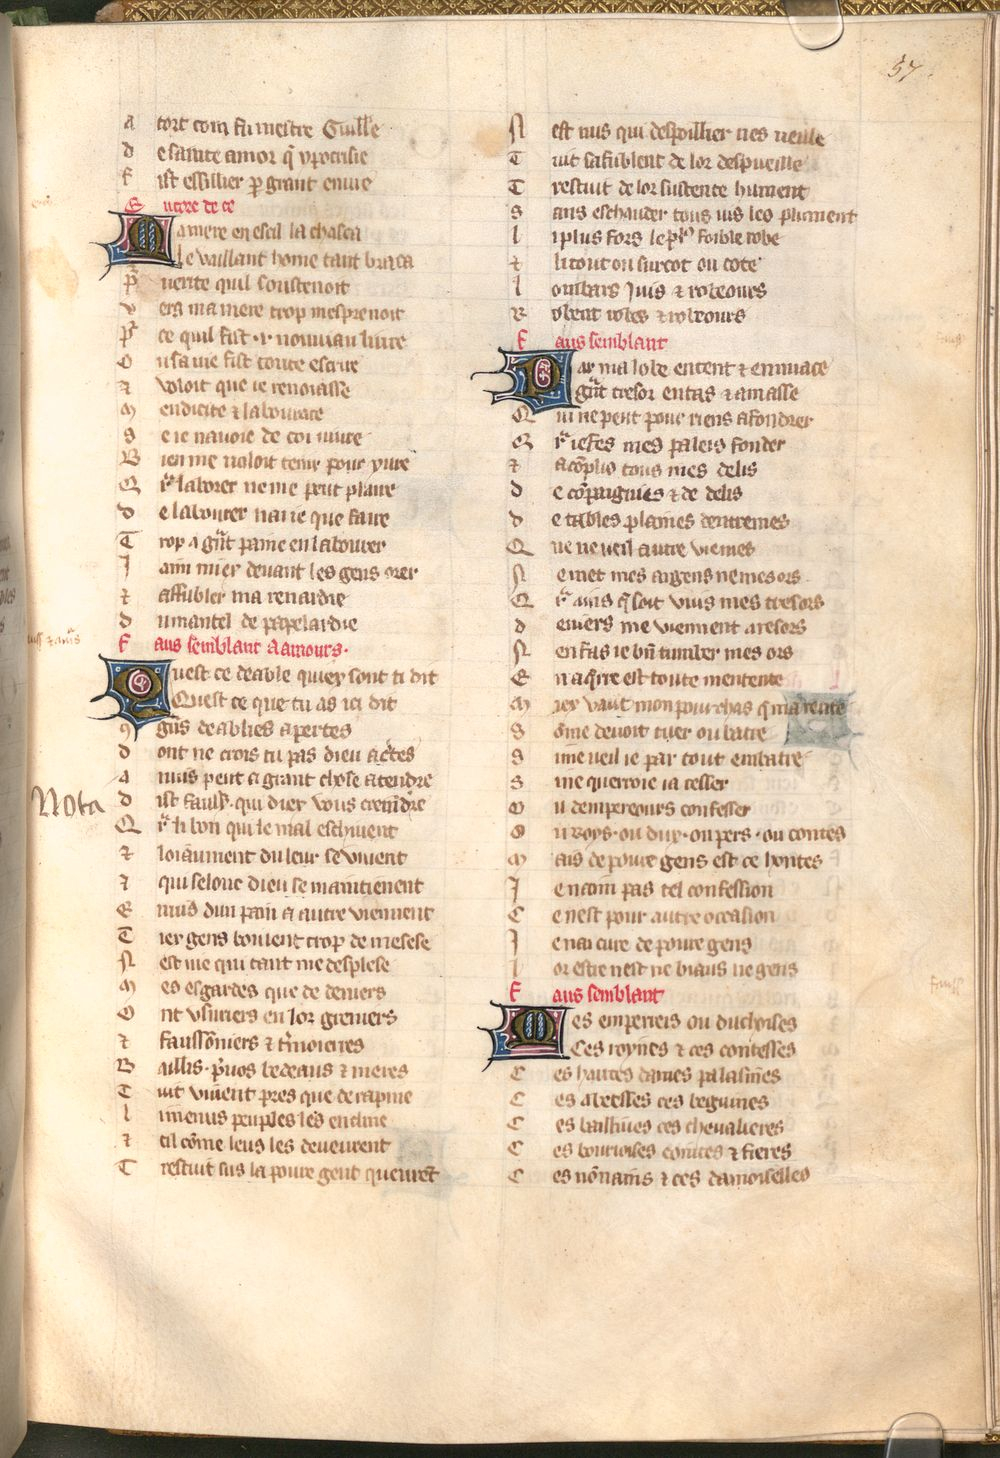 57
A tort com fu mestre Guill'e
D e sainte amor q̄ ypocrisie
F ist essillier p grant envie
E ncore de ce
M a mere en escil la chasca
L e vaillant home tant braca
P' verite quil soustenoit
V ers ma mere trop mesprenoit
P' ce quil fist .i. nouviau livre
O u sa vie fist toute escrire
⁊ voloit que ie renoiasse
M endicite ⁊ labourace
S e ie navoie de coi vivre
B ien me voloit tenir pour yvre
Q r̄ laborer ne me peut plaire
D e labourer nai ie que faire
T rop a ḡnt paine en labourer
J aim miex devant les gens orer
⁊ affubler ma renardie
D u mantel de papelardie
F aus semblant a amours.
Q uest ce deable quiex sont ti dit
Q uest ce que tu as ici dit
g̃ns deablies apertes
D ont ne crois tu pas dieu acertes
A nnis peut ci grant chose atendre
Nota
D ist faulx. qui diex vous creindre
Q r̄ li bon qui le mal eschivent
⁊ loiaument du leur se vivent
⁊ qui selonc dieu se maintienent
E nuis dun pain a autre viennent
T iex gens boivent trop de mesese
N est vie qui tant me desplese
M es esgardes que de deniers
O nt usuriers en lor greniers
⁊ faussoniers ⁊ t̄moieres
B aillis. p̄vos bedeaus ⁊ meres
T uit vivent pres que de rapine
L i menus peuples les encline
⁊ cil cōme leus les deveurent
T restuit sus la povre gent queurēt
N est nus qui despoillier nes veille
T uit safublent de lor despueille
T restuit de lor sustence hument
S ans eschauder tous vis les plument
L i plus fors le pl' foible robe
⁊ li tout ou surcot ou cote
L ombars Juis ⁊ robeours
R obent robes ⁊ robeours
F aus semblant
P ar ma lobe entent ⁊ en muace
G g̃nt tresor en tas ⁊ amasse
Q ui ne peut pour riens afondrer
Q r̄ ie fes mes paleis fonder
⁊ acōplis tous mes delis
D e cōpaignies ⁊ de delis
D e tables plaines dentremes
Q ue ne veil autre viemes
N e met mes argens ne mes ors
Q r̄ ains q̄ soit vuis mes tresors
D eniers me viennent a resors
N en fas ie bn̄ tumber mes ors
E n aq̄rre est toute mentente
M iex vaut mon pourchas q̄ ma rente
S ōme devoit tuer ou batre
S i me veil ie par tout embatre
S i ne querroie ia cesser
O u dempereours confesser
O u roys. ou dux. ou pers. ou contes
M ais de povre gens est ce hontes
J e naim pas tel confession
C e nest pour autre occasion
J e nai cure de povre gens
L or estre nest ne biaus ne gens
F aus semblant
M es emperreis ou duchoises
C es roynes ⁊ ces contesses
C es hautes dames palasines
C es abeesses ces beguines
C es baillives ces chevalieres
C es bourioises cointes ⁊ fieres
C es nōnains ⁊ ces damoiselles